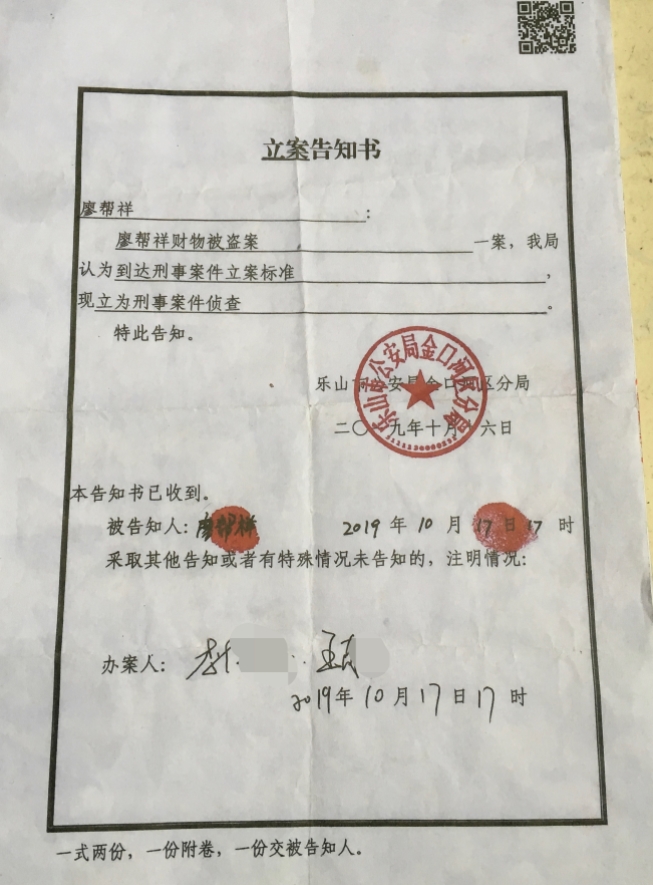 立案告知书
廖帮祥:
廖帮祥财物被盗案一案，我局
认为到达刑事案件立案标准，
现立为刑事案件侦查。
特此告知。
乐山市公安局金口河区分局
二〇一九年十月十六日
本告知书已收到。
被告知人：廖帮祥 2019年10月17日17时
采取其他告知或者有特殊情况未告知的，注明情况：
办案人：
2019年10月17日17时
一式两份，一份附卷，一份交被告知人。